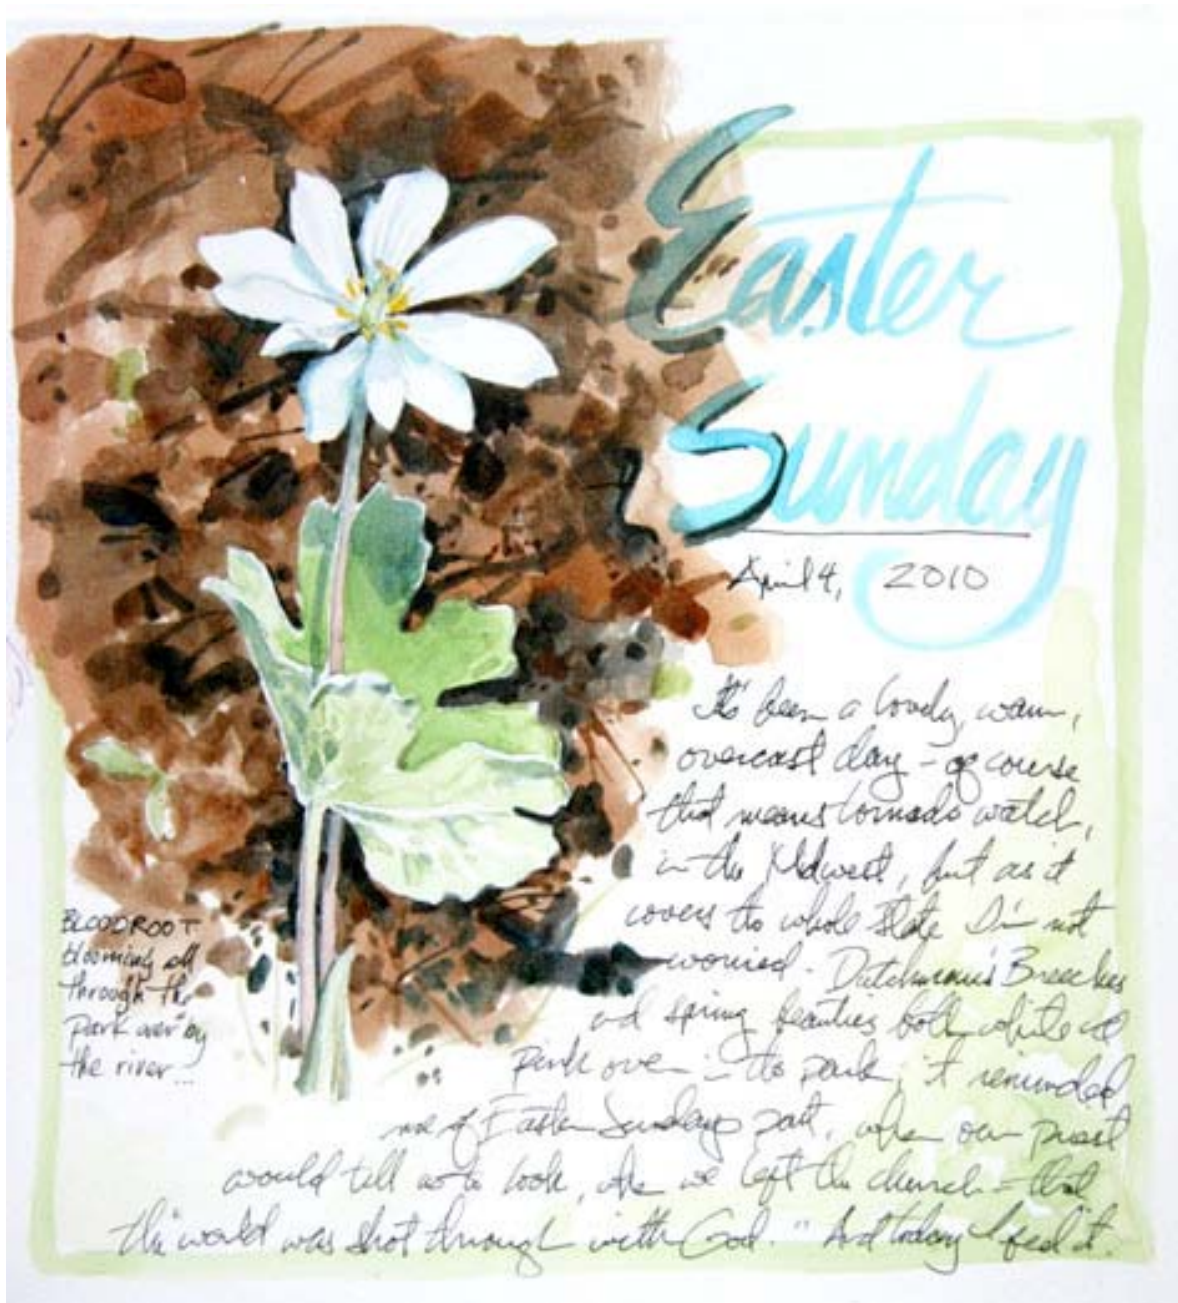 Easter
Sunday
April 4, 2010
It's been a lovely, warm,
overcast day – of course
that means tornado watch,
in the Midwest, but as it
covers the whole state I'm not
worried. Dutchman's Breeches
and spring beauties both white and
pink over in the park, it reminded
me of Easter Sundays past, when our priest
would tell us to look, when we left the church – that
the world was shot through with God." And today I feel it.
BLOODROOT
blooming all
through the
park over by
the river...